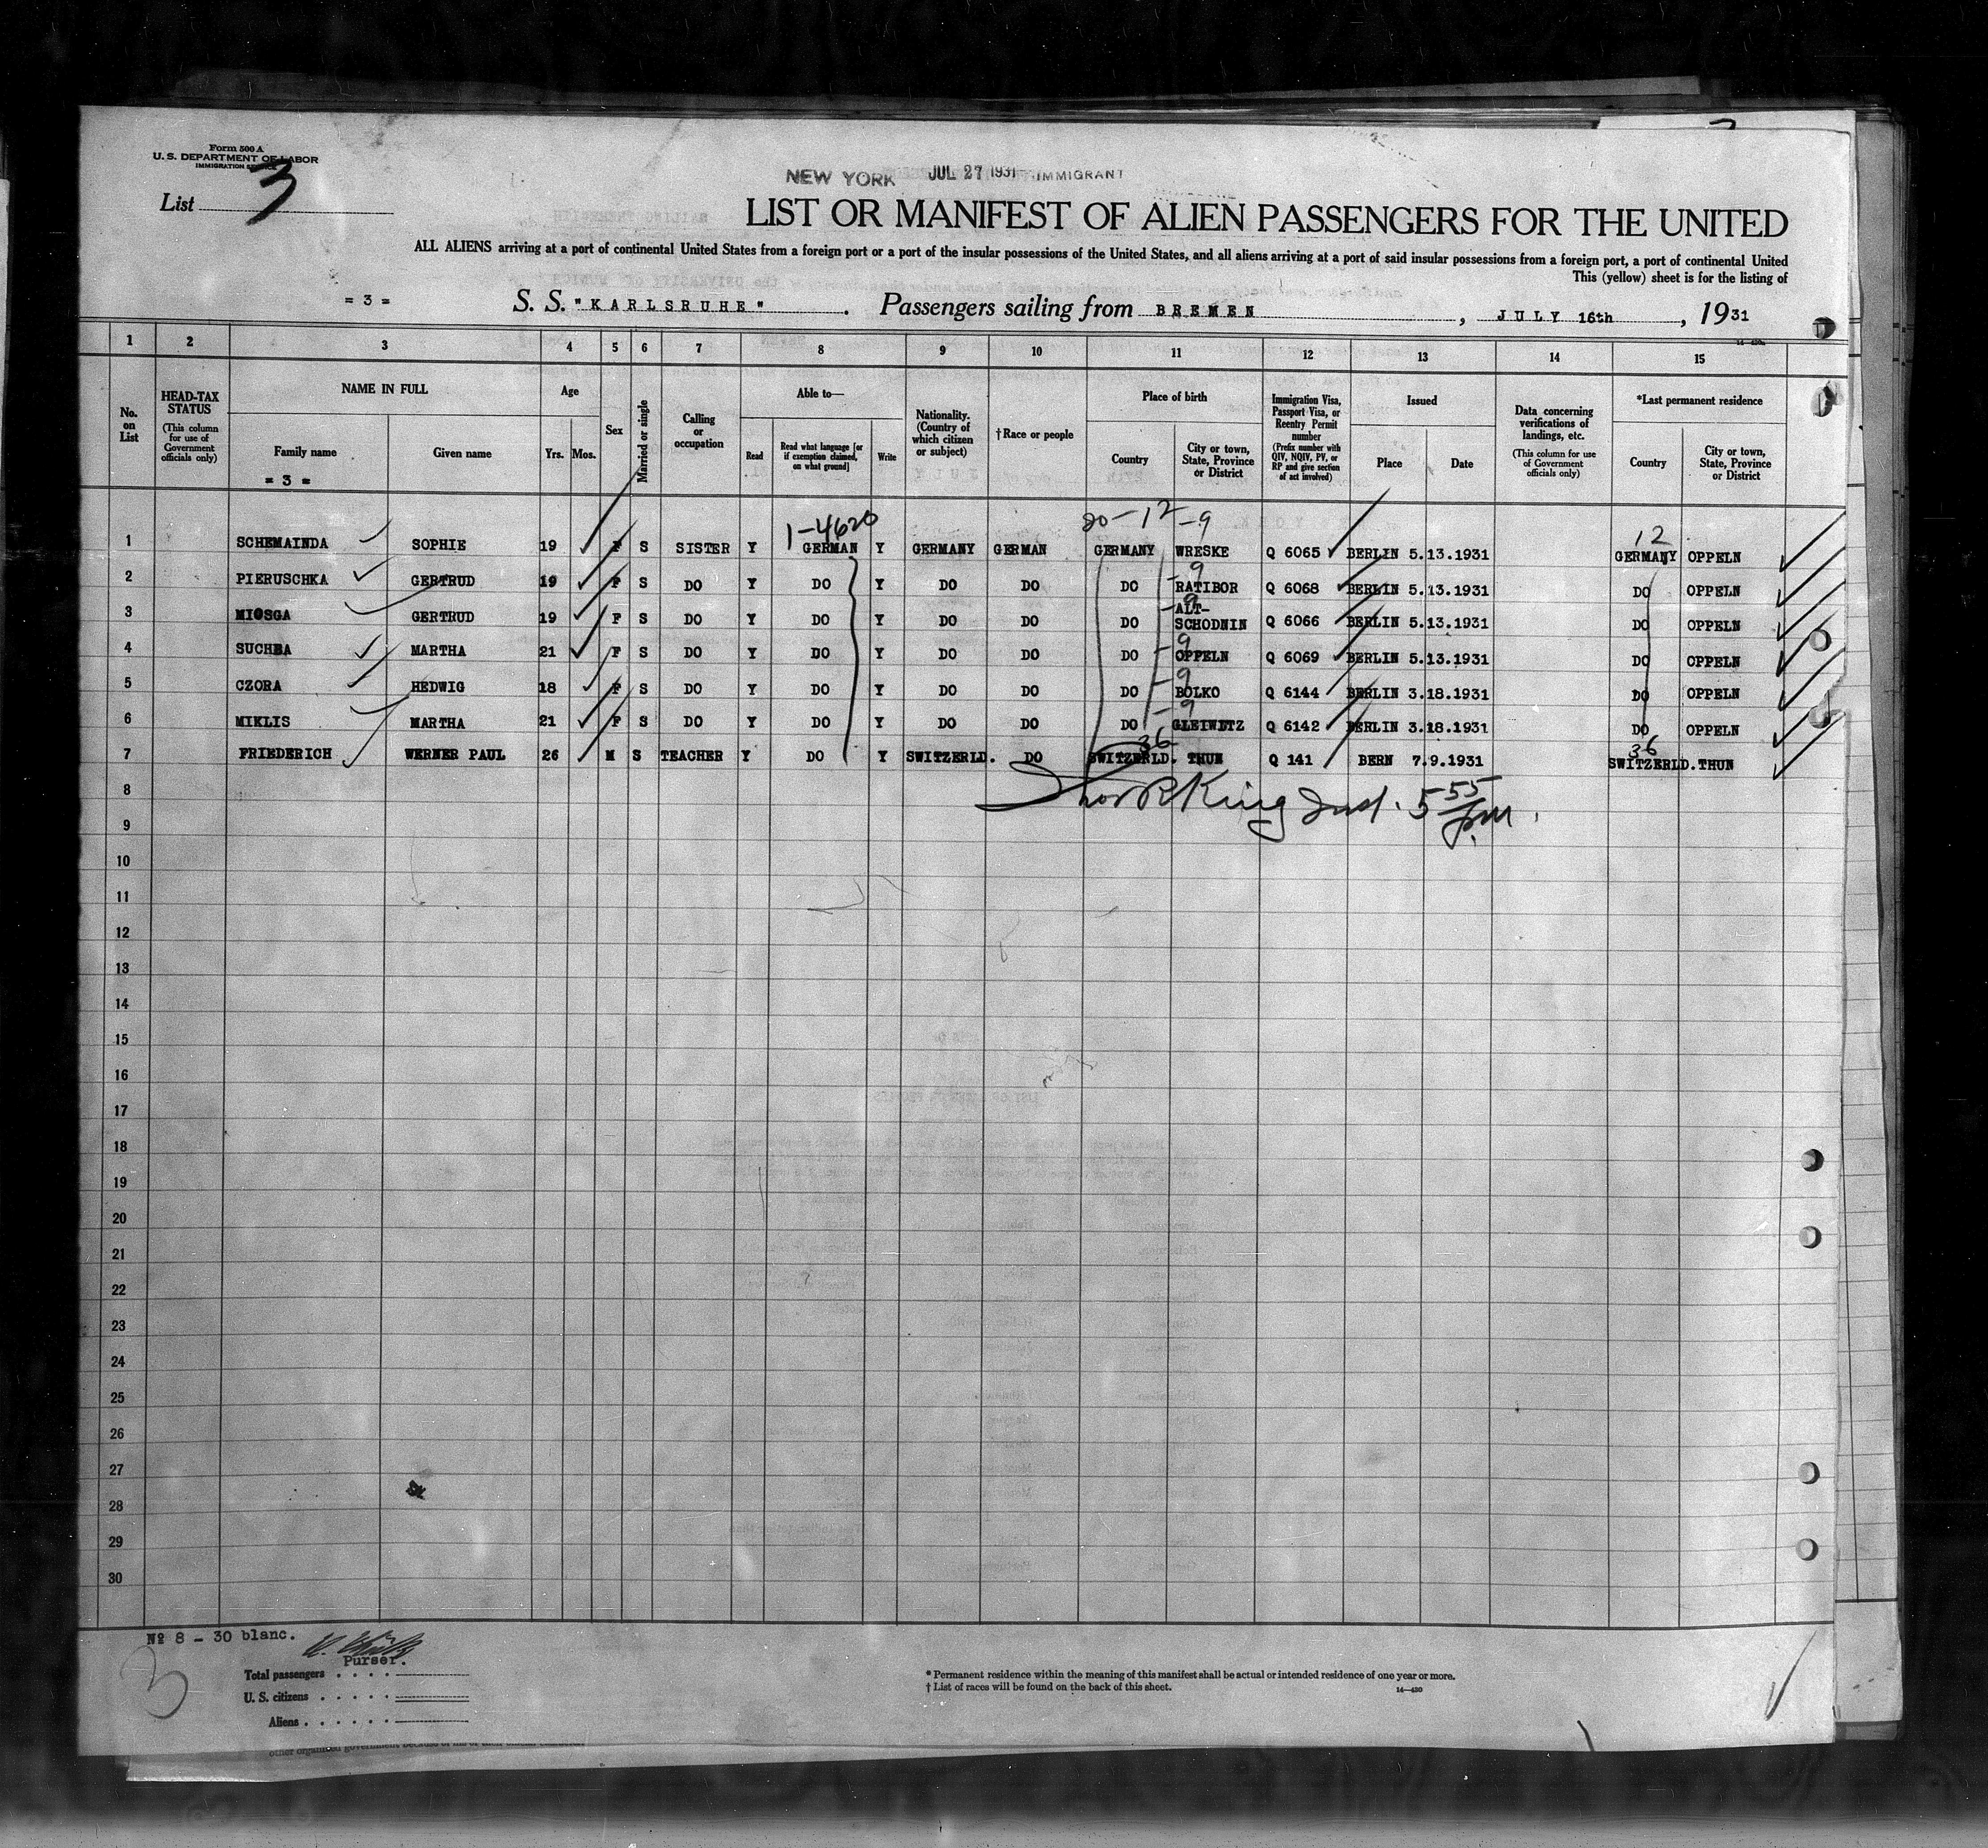 Form 500 A
U. S. DEPARTMENT OF LABOR
IMMIGRATION SERVICE
List 3
NEW YORK JUL 27 1931 IMMIGRANT
LIST OR MANIFEST OF ALIEN PASSENGERS FOR THE UNITED
ALL ALIENS arriving at a port of continental United States from a foreign port or a port of the insular possessions of the United States, and all aliens arriving at a port of said insular possessions from a foreign port, a port of continental United
This (yellow) sheet is for the listing of
= 3 = S. S. "KARLSRUHE". Passengers sailing from BREMEN, JULY 16th, 1931
1 2 3 4 5 6 7 8 9 10 11 12 13 14 15
No. on List
HEAD-TAX STATUS (This column for use of Government officials only)
NAME IN FULL
Family name
= 3 =
Given name
Age
Yrs. Mos.
Sex
Married or single
Calling or occupation
Able to—
Read
Read what language [or if exemption claimed, on what ground]
Write
Nationality. (Country of which citizen or subject)
† Race or people
Place of birth
Country
City or town, State, Province or District
Immigration Visa, Passport Visa, or Reentry Permit number (Prefix number with QIV, NQIV, PV, or RP and give section of act involved)
Issued
Place
Date
Data concerning verifications of landings, etc. (This column for use of Government officials only)
*Last permanent residence
Country
City or town, State, Province or District
1-4620 20-12-9 12
1 SCHEMAINDA SOPHIE 19 F S SISTER Y GERMAN Y GERMANY GERMAN GERMANY WRESKE Q 6065 BERLIN 5.13.1931 GERMANY OPPELN
-9
2 PIERUSCHKA GERTRUD 19 F S DO Y DO Y DO DO DO RATIBOR Q 6068 BERLIN 5.13.1931 DO OPPELN
-9
3 MIOSGA GERTRUD 19 F S DO Y DO Y DO DO DO ALT-SCHODNIN Q 6066 BERLIN 5.13.1931 DO OPPELN
-9
4 SUCHBA MARTHA 21 F S DO Y DO Y DO DO DO OPPELN Q 6069 BERLIN 5.13.1931 DO OPPELN
-9
5 CZORA HEDWIG 18 F S DO Y DO Y DO DO DO BOLKO Q 6144 BERLIN 3.18.1931 DO OPPELN
-9
6 MIKLIS MARTHA 21 F S DO Y DO Y DO DO DO GLEIWITZ Q 6142 BERLIN 3.18.1931 DO OPPELN
36 36
7 FRIEDERICH WERNER PAUL 26 M S TEACHER Y DO Y SWITZERLD. DO SWITZERLD. THUN Q 141 BERN 7.9.1931 SWITZERLD. THUN
8
Thos R King Insp. 5 55 pm.
9
10
11
12
13
14
15
16
17
18
19
20
21
22
23
24
25
26
27
28
29
30
Nº 8 - 30 blanc.
Purser.
3
Total passengers
U. S. citizens
Aliens
* Permanent residence within the meaning of this manifest shall be actual or intended residence of one year or more.
† List of races will be found on the back of this sheet.
14—430